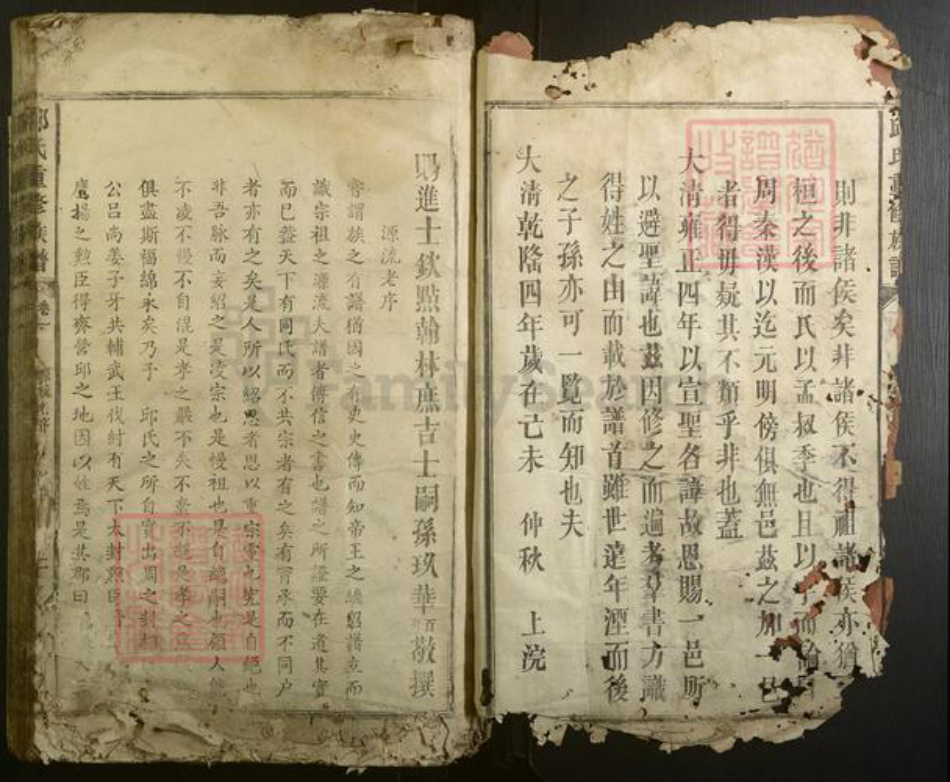 則非諸侯矣非諸侯不得祖諸侯亦猶
桓之後而氏以孟叔季也且以
周秦漢以迄元明傍俱無邑茲之加一邑
者得毋疑其不類乎非也蓋
大清雍正四年以宣聖名諱故恩賜一邑斯
以避聖諱也茲因修之而遍考羣書方識
得姓之由而載於譜首雖世遠年湮而後
之子孫亦可一覧而知也夫
大清乾隆四年歲在己未 仲秋 上浣
賜進士欽點翰林庶吉士嗣孫玖華百拜敬撰
源流老序
嘗謂族之有譜猶國之有史史傳而知帝王之纘紹譜立而
識宗祖之源流夫譜者傳信之書也譜之所證要在道其實
而已蓋天下有同氏而不共宗者有之矣有實承而不同户
者亦有之矣是人所以紹思者思以重宗
非吾脉而妄紹之是凌宗也是慢祖也是自
不凌不慢不自混是孝之嚴不失不
俱盡斯福綿永矣乃予 邱氏之所自實出周之
公吕尚姜子牙共輔武王伐紂有天下大封
鷹揚之勲臣得齊營邱之地因以姓焉是其郡曰
邱氏重修族譜 卷
FamilySearch